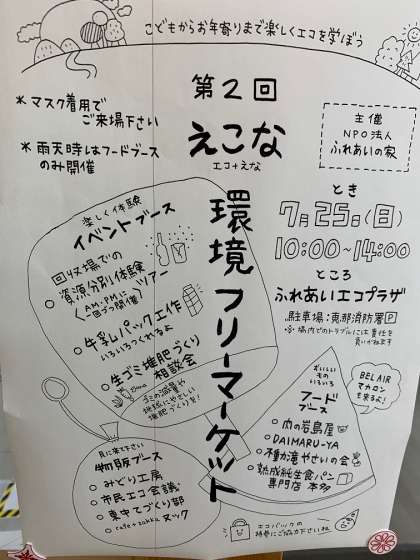 こどもからお年寄りまで楽しくエコを学ぼう
＊マスク着用で
ご来場下さい
＊雨天時はフードブース
のみ開催
第2回
えこな
エコ+えな
環境フリーマーケット
主催
NPO法人
ふれあいの家
とき
7月25日(日)
10:00~14:00
ところ
ふれあいエコプラザ
駐車場：恵那消防署P
※場内でのトラブルには責任を
負いかねます
楽しく体験
イベントブース
回収場での
資源分別体験
ツアー
(AM・PMに
一回づつ開催)
牛乳パック工作
いろいろつくれるよ
生ゴミ堆肥づくり
相談会
ゴミの減量や
地球にやさしい
堆肥づくりを!
見に来て下さい
物販ブース
みどり工房
市民エコ会議
東中てづくり部
cafe+zakka ヌック
おいしい
もの
いろいろ
フード
ブース
肉の岩島屋
DAIMARU-YA
不動滝やさいの会
熟成純生食パン
専門店 本多
BEL AIR
マカロン
も来るよ!
エコバックの
持参にご協力下さいね